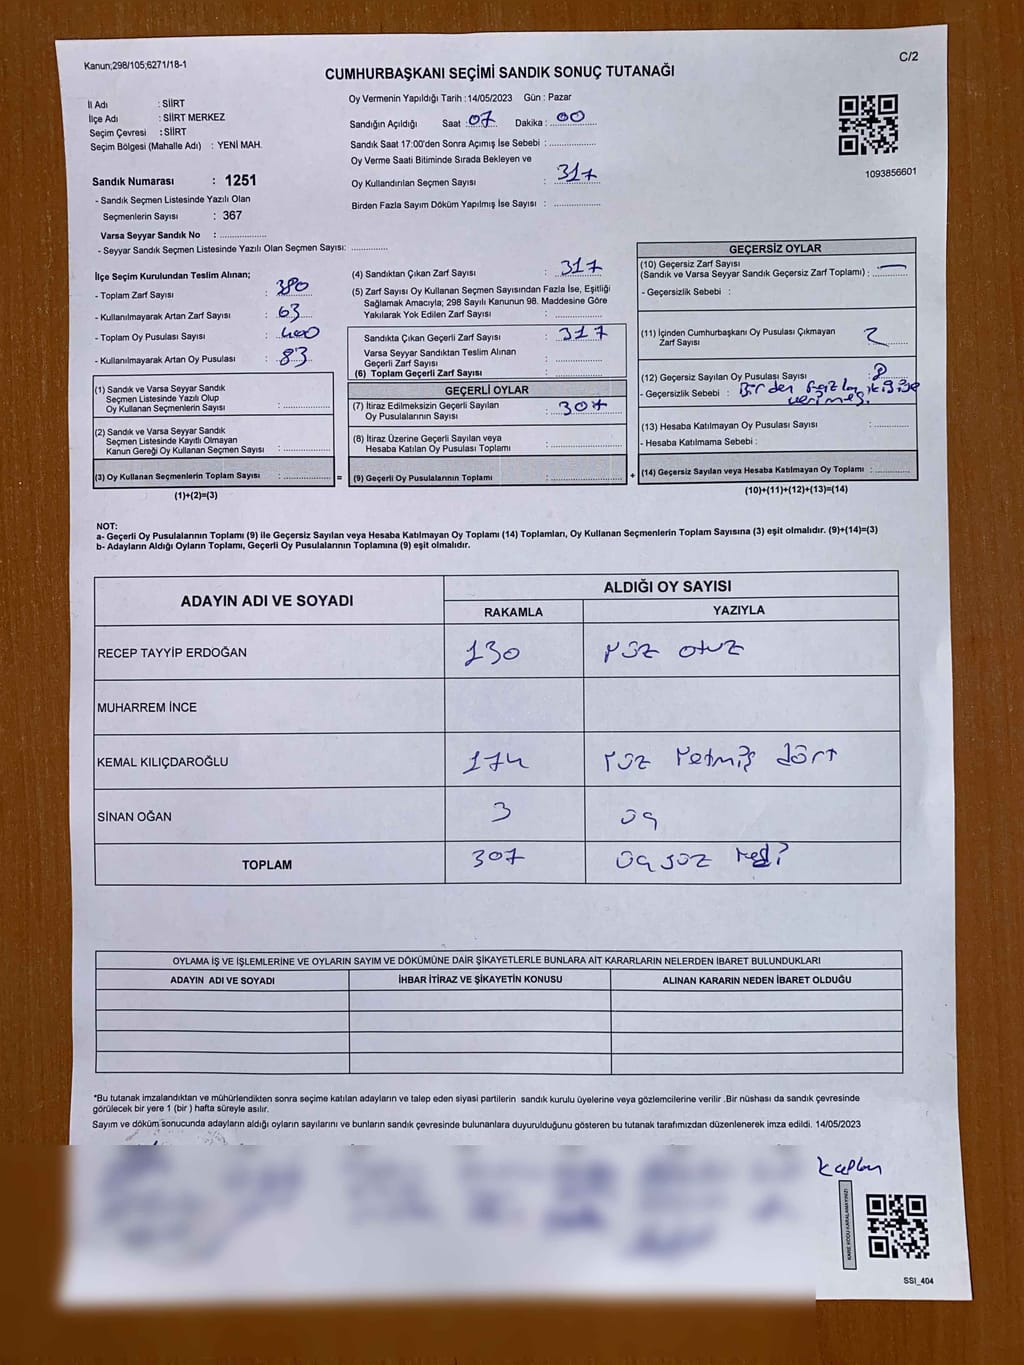 Kanun;298/105;6271/18-1
C/2
CUMHURBAŞKANI SEÇİMİ SANDIK SONUÇ TUTANAĞI
İl Adı : SİİRT
İlçe Adı : SİİRT MERKEZ
Seçim Çevresi : SİİRT
Seçim Bölgesi (Mahalle Adı) : YENİ MAH.
Oy Vermenin Yapıldığı Tarih :14/05/2023 Gün : Pazar
Sandığın Açıldığı Saat : 07 Dakika : 00
Sandık Saat 17:00'den Sonra Açımış İse Sebebi :
Oy Verme Saati Bitiminde Sırada Bekleyen ve
Oy Kullandırılan Seçmen Sayısı : 317
Birden Fazla Sayım Döküm Yapılmış İse Sayısı :
1093856601
Sandık Numarası : 1251
- Sandık Seçmen Listesinde Yazılı Olan
Seçmenlerin Sayısı : 367
Varsa Seyyar Sandık No :
- Seyyar Sandık Seçmen Listesinde Yazılı Olan Seçmen Sayısı:
İlçe Seçim Kurulundan Teslim Alınan;
- Toplam Zarf Sayısı : 380
- Kullanılmayarak Artan Zarf Sayısı : 63
- Toplam Oy Pusulası Sayısı : 400
- Kullanılmayarak Artan Oy Pusulası : 83
(1) Sandık ve Varsa Seyyar Sandık
Seçmen Listesinde Yazılı Olup
Oy Kullanan Seçmenlerin Sayısı :
(2) Sandık ve Varsa Seyyar Sandık
Seçmen Listesinde Kayıtlı Olmayan
Kanun Gereği Oy Kullanan Seçmen Sayısı :
(3) Oy Kullanan Seçmenlerin Toplam Sayısı : =
(1)+(2)=(3)
(4) Sandıktan Çıkan Zarf Sayısı : 317
(5) Zarf Sayısı Oy Kullanan Seçmen Sayısından Fazla İse, Eşitliği
Sağlamak Amacıyla; 298 Sayılı Kanunun 98. Maddesine Göre
Yakılarak Yok Edilen Zarf Sayısı :
Sandıkta Çıkan Geçerli Zarf Sayısı : 317
Varsa Seyyar Sandıktan Teslim Alınan
Geçerli Zarf Sayısı :
(6) Toplam Geçerli Zarf Sayısı :
GEÇERLİ OYLAR
(7) İtiraz Edilmeksizin Geçerli Sayılan
Oy Pusulalarının Sayısı : 307
(8) İtiraz Üzerine Geçerli Sayılan veya
Hesaba Katılan Oy Pusulası Toplamı :
(9) Geçerli Oy Pusulalarının Toplamı : +
GEÇERSİZ OYLAR
(10) Geçersiz Zarf Sayısı
(Sandık ve Varsa Seyyar Sandık Geçersiz Zarf Toplamı) : —
- Geçersizlik Sebebi :
(11) İçinden Cumhurbaşkanı Oy Pusulası Çıkmayan
Zarf Sayısı : 2
(12) Geçersiz Sayılan Oy Pusulası Sayısı : 8
- Geçersizlik Sebebi : Birden fazla kişiye
verilmeş.
(13) Hesaba Katılmayan Oy Pusulası Sayısı :
- Hesaba Katılmama Sebebi :
(14) Geçersiz Sayılan veya Hesaba Katılmayan Oy Toplamı :
(10)+(11)+(12)+(13)=(14)
NOT:
a- Geçerli Oy Pusulalarının Toplamı (9) ile Geçersiz Sayılan veya Hesaba Katılmayan Oy Toplamı (14) Toplamları, Oy Kullanan Seçmenlerin Toplam Sayısına (3) eşit olmalıdır. (9)+(14)=(3)
b- Adayların Aldığı Oyların Toplamı, Geçerli Oy Pusulalarının Toplamına (9) eşit olmalıdır.
ADAYIN ADI VE SOYADI
ALDIĞI OY SAYISI
RAKAMLA YAZIYLA
RECEP TAYYİP ERDOĞAN 130 yüz otuz
MUHARREM İNCE
KEMAL KILIÇDAROĞLU 174 yüz yetmiş dört
SİNAN OĞAN 3 üç
TOPLAM 307 üç yüz yedi
OYLAMA İŞ VE İŞLEMLERİNE VE OYLARIN SAYIM VE DÖKÜMÜNE DAİR ŞİKAYETLERLE BUNLARA AİT KARARLARIN NELERDEN İBARET BULUNDUKLARI
ADAYIN ADI VE SOYADI İHBAR İTİRAZ VE ŞİKAYETİN KONUSU ALINAN KARARIN NEDEN İBARET OLDUĞU
*Bu tutanak imzalandıktan ve mühürlendikten sonra seçime katılan adayların ve talep eden siyasi partilerin sandık kurulu üyelerine veya gözlemcilerine verilir .Bir nüshası da sandık çevresinde
görülecek bir yere 1 (bir ) hafta süreyle asılır.
Sayım ve döküm sonucunda adayların aldığı oyların sayılarını ve bunların sandık çevresinde bulunanlara duyurulduğunu gösteren bu tutanak tarafımızdan düzenlenerek imza edildi. 14/05/2023
Kaplan
KARE KODU KARALAMAYINIZ!
SSI_404